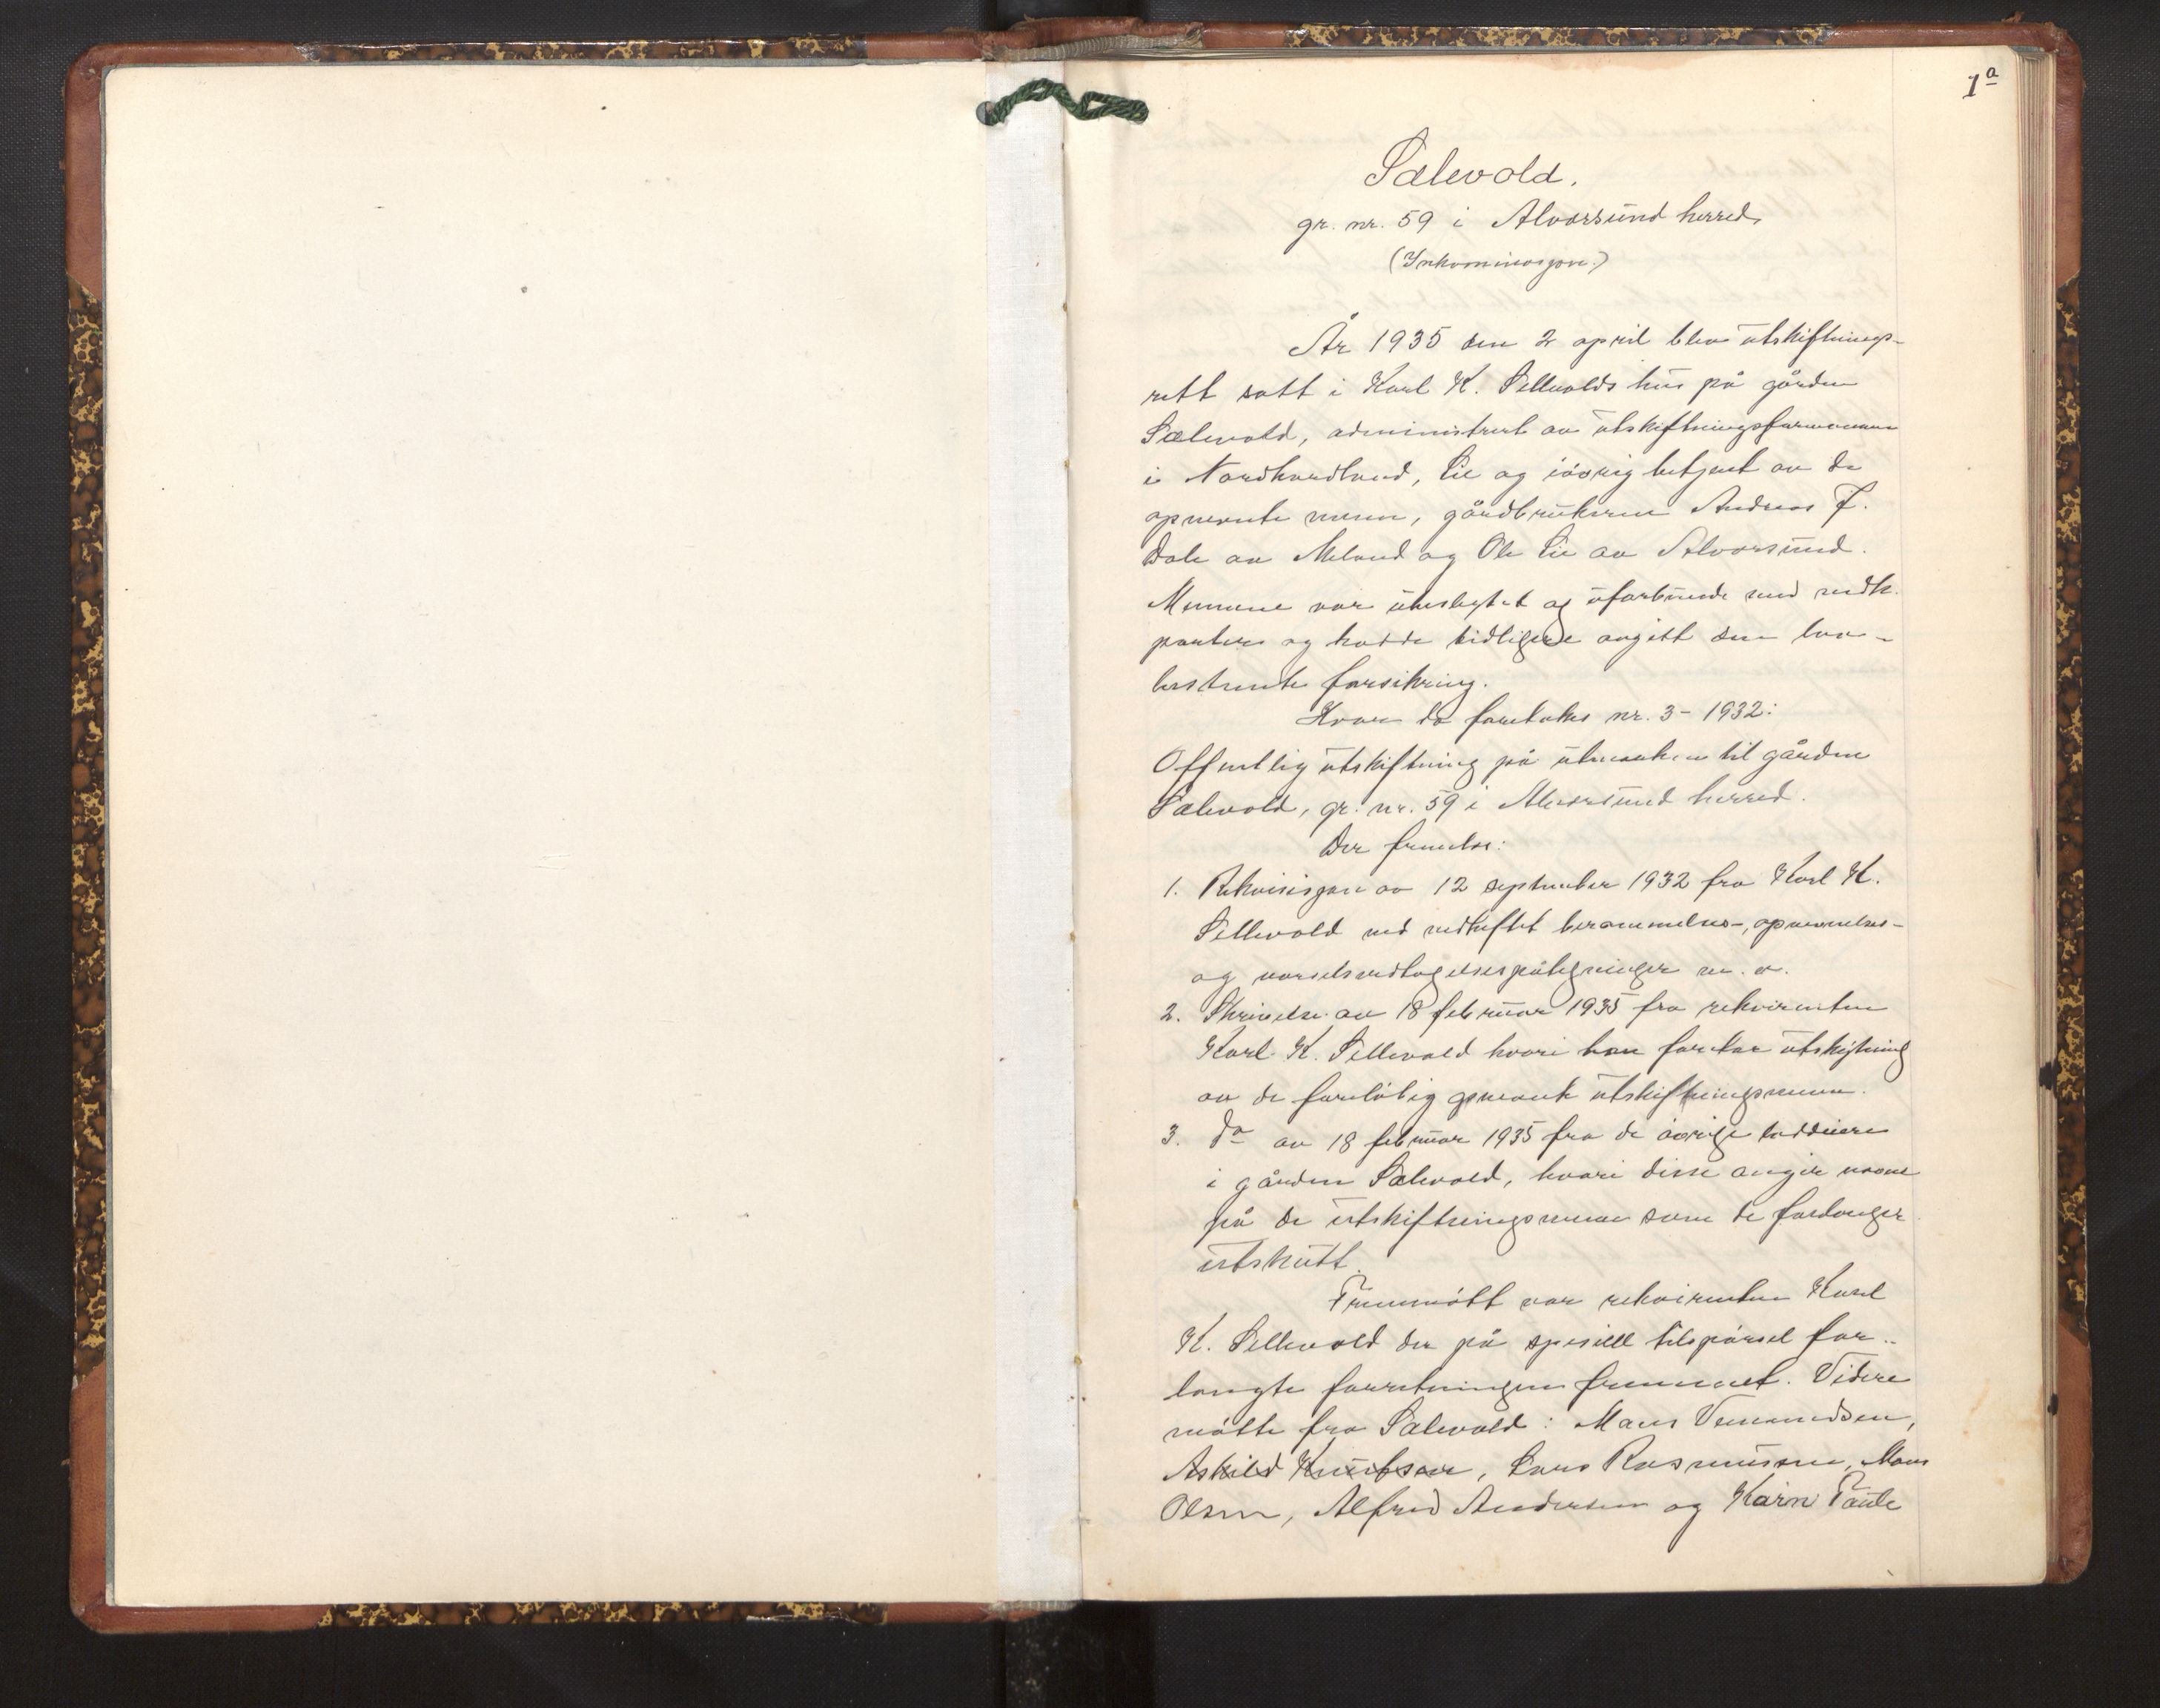 1a
Sælevold.
gr. nr. 59 i Alversund herred,
(Inkaminasjon.)
År 1935 den 2 april blev utskiftnings-
rett satt i Karl K. Sellevolds hus på gården
Sælevold, administrert av utskiftningsformannen
i Nordhordland, Lie og iøvrig betjent av de
opnevnte menn, gårdbrukerne Andreas J.
Dale av Meland og Ole Lie av Alversund.
Mennene var ubeslegtet og uforbundne med vedk.
parter og hadde tidligere avgitt den lov-
bestemte forsikring.
Hvor da foretokes nr. 3 - 1932:
Offentlig utskiftning på utmarken til gården
Sælevold, gr. nr. 59 i Alversund herred.
Der fremlas:
1. Rekvisisjon av 12 september 1932 fra Karl K.
Sellevold med vedheftet berammelses-, opnevnelses-
og varselsvedtagelsespåtegninger m. v.
2. Skrivelse av 18 februar 1935 fra rekvirenten
Karl K. Sellevold hvori han foretar utskytning
av de foreløbig opnevnte utskiftningsmenn.
3. do av 18 februar 1935 fra de øvrige loddeiere
i gården Sælevold, hvori disse angir navne
på de utskiftningsmenn som de forlanger
utskutt.
Fremmøtt var rekvirenten Karl
K. Sellevold der på spesiell tilspørsel for-
langte forretningen fremmet. Videre
møtte fra Sælevold: Mans Vemundsen,
Askild Knutsen, Lars Rasmussen, Mons
Olsen, Alfred Andersen og Karn Taule